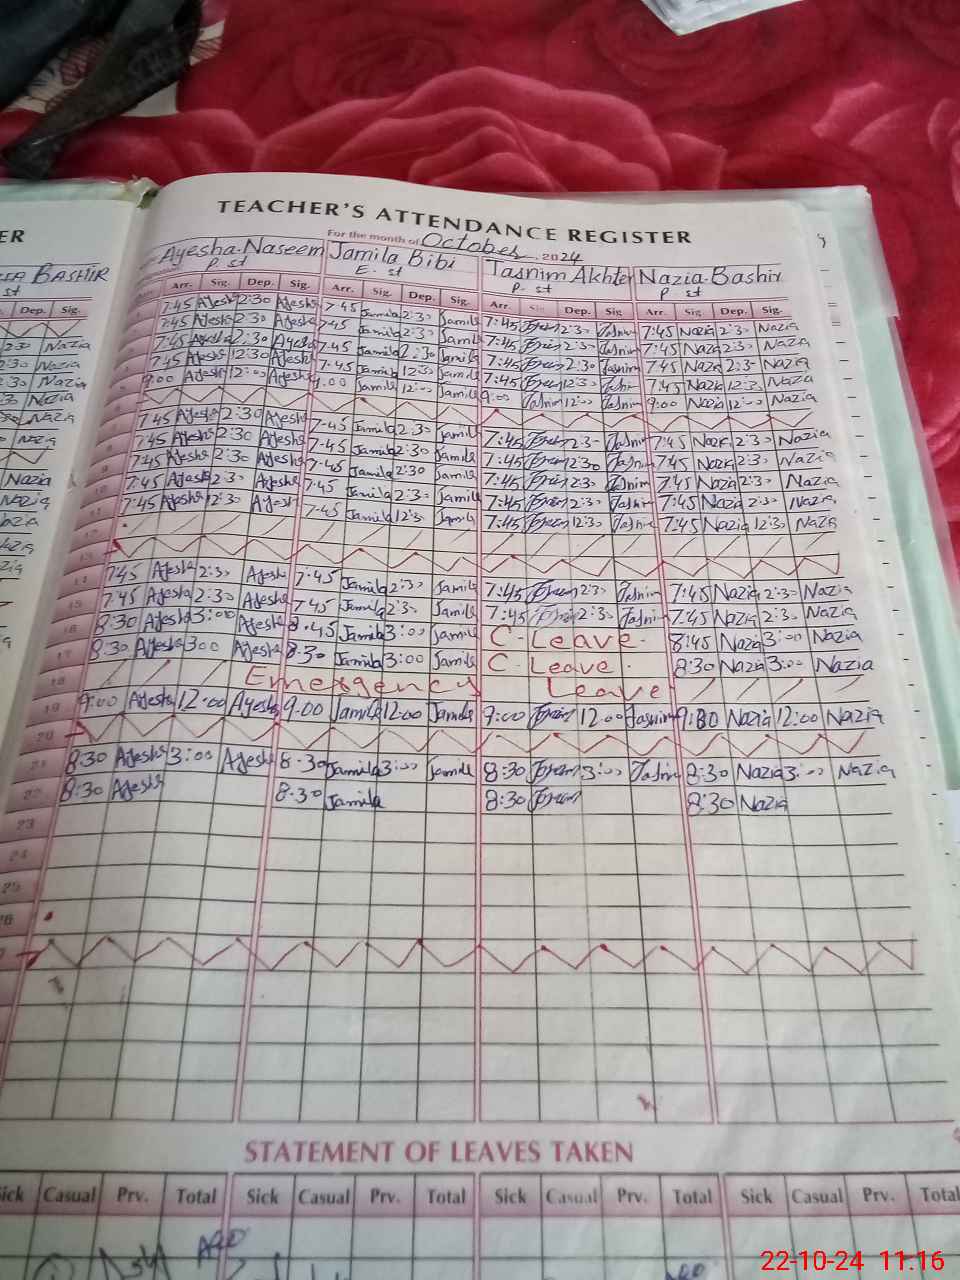 ER
TEACHER'S ATTENDANCE REGISTER
For the month of October 2024
BASHIR Ayesha Naseem Jamila Bibi Tasnim Akhter Nazia Bashir
st P. st E. st P. st P. st
Dep. Sig. Arr. Sig. Dep. Sig. Arr. Sig. Dep. Sig. Arr. Sig. Dep. Sig. Arr. Sig. Dep. Sig.
7:45 Ayesha 2:30 Ayesha 7:45 Jamila 2:30 Jamila 7:45 2:30 Tasnim 7:45 Nazia 2:30 Nazia
7:45 Ayesha 2:30 Ayesha 7:45 Jamila 2:30 Jamila 7:45 2:30 Tasnim 7:45 Nazia 2:30 Nazia
7:45 Ayesha 2:30 Ayesha 7:45 Jamila 2:30 Jamila 7:45 2:30 Tasnim 7:45 Nazia 2:30 Nazia
7:45 Ayesha 12:30 Ayesha 7:45 Jamila 12:30 Jamila 7:45 12:30 Tasnim 7:45 Nazia 12:30 Nazia
9:00 Ayesha 12:00 Ayesha 9:00 Jamila 12:00 Jamila 9:00 Tasnim 12:00 Tasnim 9:00 Nazia 12:00 Nazia
7:45 Ayesha 2:30 Ayesha 7:45 Jamila 2:30 Jamila 7:45 2:30 Tasnim 7:45 Nazia 2:30 Nazia
7:45 Ayesha 2:30 Ayesha 7:45 Jamila 2:30 Jamila 7:45 2:30 Tasnim 7:45 Nazia 2:30 Nazia
7:45 Ayesha 2:30 Ayesha 7:45 Jamila 2:30 Jamila 7:45 2:30 Tasnim 7:45 Nazia 2:30 Nazia
7:45 Ayesha 2:30 Ayesha 7:45 Jamila 2:30 Jamila 7:45 2:30 Tasnim 7:45 Nazia 2:30 Nazia
7:45 Ayesha 12:30 Ayesha 7:45 Jamila 12:30 Jamila 7:45 12:30 Tasnim 7:45 Nazia 12:30 Nazia
14 7:45 Ayesha 2:30 Ayesha 7:45 Jamila 2:30 Jamila 7:45 2:30 Tasnim 7:45 Nazia 2:30 Nazia
15 7:45 Ayesha 2:30 Ayesha 7:45 Jamila 2:30 Jamila 7:45 2:30 Tasnim 7:45 Nazia 2:30 Nazia
16 8:30 Ayesha 3:00 Ayesha 8:45 Jamila 3:00 Jamila C. Leave. 8:45 Nazia 3:00 Nazia
17 8:30 Ayesha 3:00 Ayesha 8:30 Jamila 3:00 Jamila C. Leave. 8:30 Nazia 3:00 Nazia
18 Emergency Leave
19 9:00 Ayesha 12:00 Ayesha 9:00 Jamila 12:00 Jamila 9:00 12:00 Tasnim 9:30 Nazia 12:00 Nazia
20
21 8:30 Ayesha 3:00 Ayesha 8:30 Jamila 3:00 Jamila 8:30 3:00 Tasnim 8:30 Nazia 3:00 Nazia
22 8:30 Ayesha 8:30 Jamila 8:30 8:30 Nazia
23
24
25
26
STATEMENT OF LEAVES TAKEN
Sick Casual Prv. Total Sick Casual Prv. Total Sick Casual Prv. Total Sick Casual Prv. Total
22-10-24 11:16